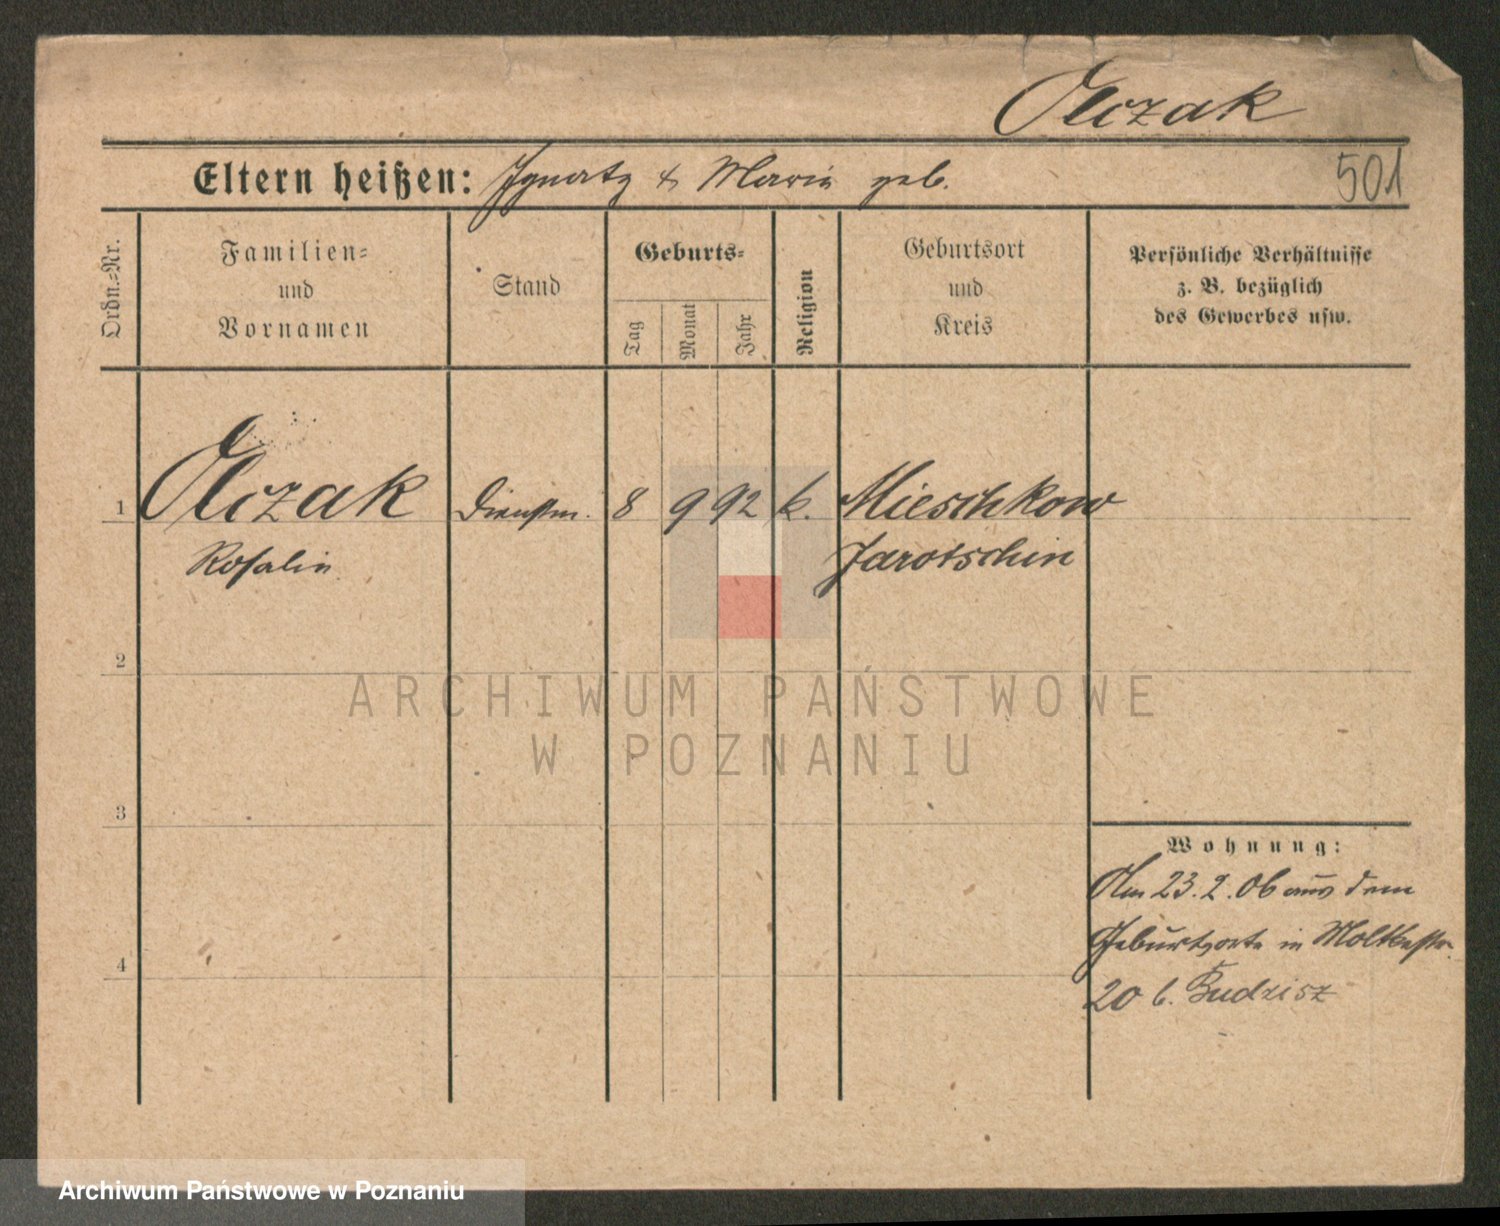 Olczak
Eltern heißen: Ignatz & Maria geb.
501
Ordn.=Nr.
Familien=
und
Vornamen
Stand
Geburts=
Tag
Monat
Jahr
Religion
Geburtsort
und
Kreis
Persönliche Verhältnisse
z. B. bezüglich
des Gewerbes usw.
1 Olczak Dienstm. 8 9 92 k. Mieschkow
Rosalie Jarotschin
2
3
4
Wohnung:
Am 23.2.06 aus dem
Geburtsorte in Moltkestr.
20 b. Budzisz
ARCHIWUM PAŃSTWOWE
W POZNANIU
Archiwum Państwowe w Poznaniu